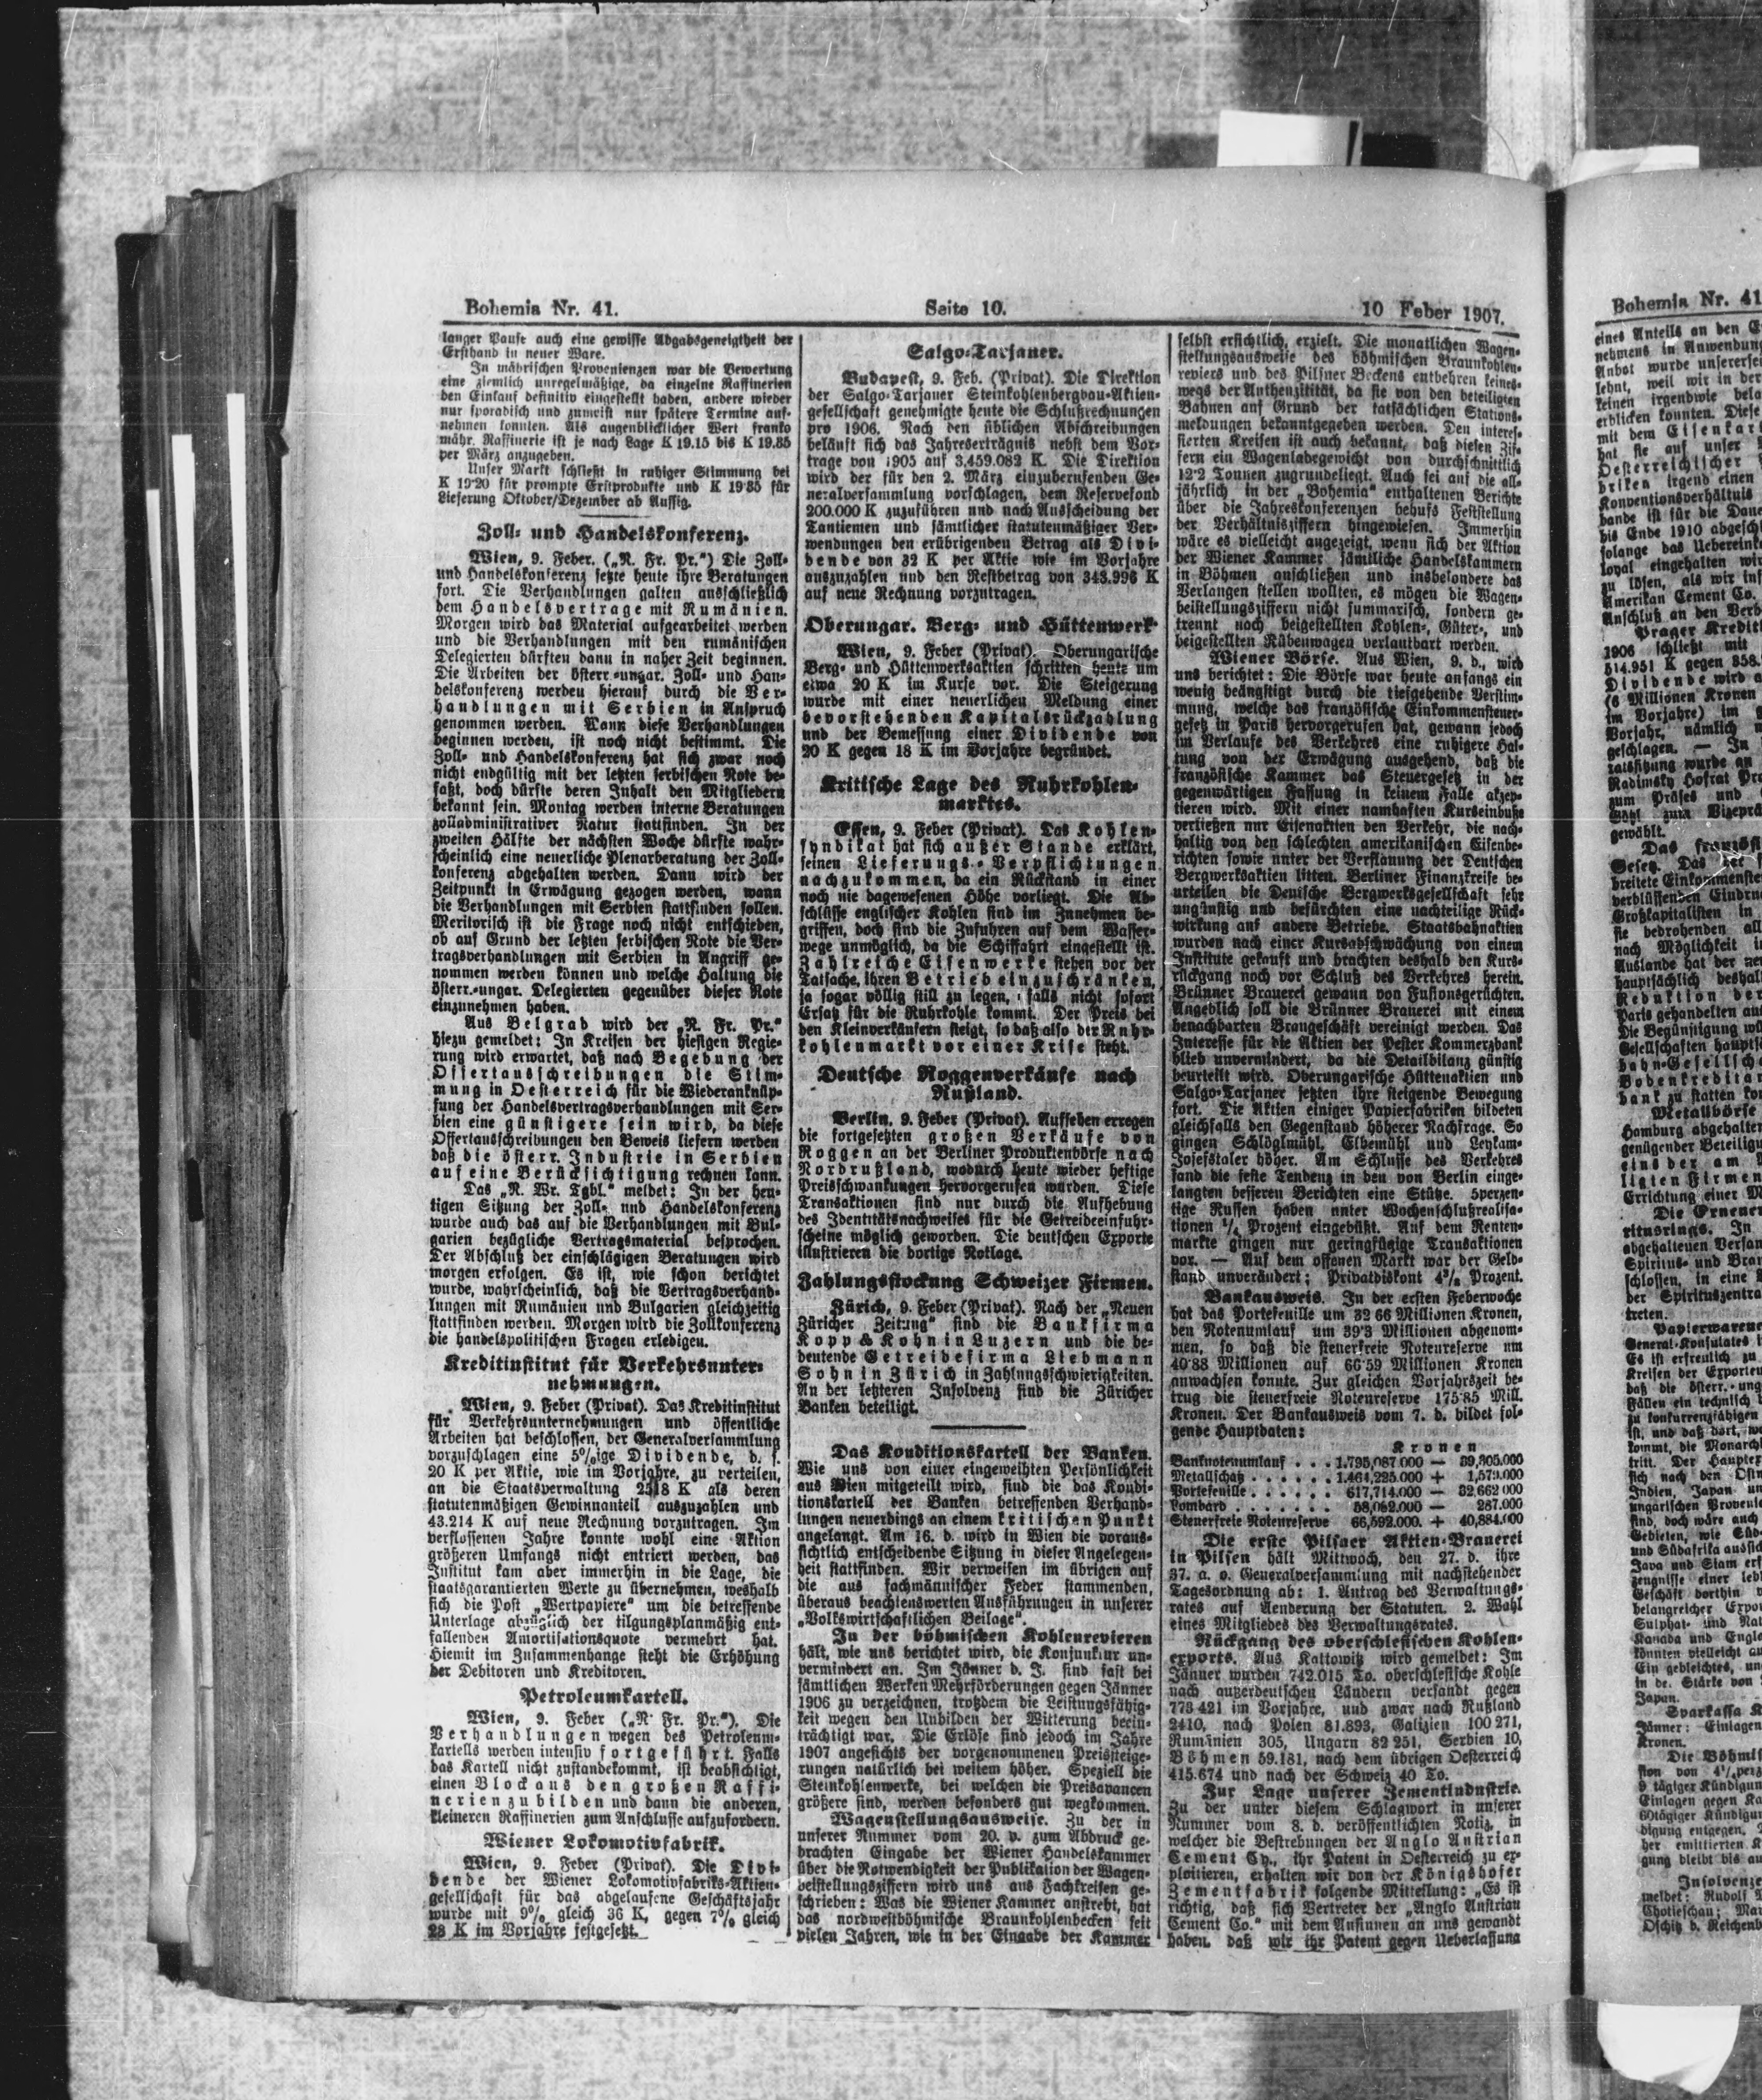 Bohemia Nr. 41.
Seite 10.
10 Feber 1907.
langer Pause auch eine gewisse Abgabsgeneigtheit der
Ersthand in neuer Ware.
In mährischen Provenienzen war die Bewertung
eine ziemlich unregelmäßige, da einzelne Raffinerien
den Einkauf definitiv eingestellt haben, andere wieder
nur sporadisch und zumeist nur spätere Termine auf-
nehmen konnten. Als augenblicklicher Wert franko
mähr. Raffinerie ist je nach Lage K 19.15 bis K 19.35
per März anzugeben.
Unser Markt schließt in ruhiger Stimmung bei
K 19·20 für prompte Erstprodukte und K 19·35 für
Lieferung Oktober/Dezember ab Aussig.
Zoll- und Handelskonferenz.
Wien, 9. Feber. („N. Fr. Pr.") Die Zoll-
und Handelskonferenz setzte heute ihre Beratungen
fort. Die Verhandlungen galten ausschließlich
dem Handelsvertrage mit Rumänien.
Morgen wird das Material aufgearbeitet werden
und die Verhandlungen mit den rumänischen
Delegierten dürften dann in naher Zeit beginnen.
Die Arbeiten der österr.-ungar. Zoll- und Han-
delskonferenz werden hierauf durch die Ver-
handlungen mit Serbien in Anspruch
genommen werden. Wann diese Verhandlungen
beginnen werden, ist noch nicht bestimmt. Die
Zoll- und Handelskonferenz hat sich zwar noch
nicht endgültig mit der letzten serbischen Note be-
faßt, doch dürfte deren Inhalt den Mitgliedern
bekannt sein. Montag werden interne Beratungen
zolladministrativer Natur stattfinden. In der
zweiten Hälfte der nächsten Woche dürfte wahr-
scheinlich eine neuerliche Plenarberatung der Zoll-
konferenz abgehalten werden. Dann wird der
Zeitpunkt in Erwägung gezogen werden, wann
die Verhandlungen mit Serbien stattfinden sollen.
Meritorisch ist die Frage noch nicht entschieden,
ob auf Grund der letzten serbischen Note die Ver-
tragsverhandlungen mit Serbien in Angriff ge-
nommen werden können und welche Haltung die
österr.-ungar. Delegierten gegenüber dieser Note
einzunehmen haben.
Aus Belgrad wird der „N. Fr. Pr."
hiezu gemeldet: In Kreisen der hiesigen Regie-
rung wird erwartet, daß nach Begebung der
Offertausschreibungen die Stim-
mung in Oesterreich für die Wiederanknüp-
fung der Handelsvertragsverhandlungen mit Ser-
bien eine günstigere sein wird, da diese
Offertausschreibungen den Beweis liefern werden
daß die österr. Industrie in Serbien
auf eine Berücksichtigung rechnen kann.
Das „N. Wr. Tgbl." meldet: In der heu-
tigen Sitzung der Zoll- und Handelskonferenz
wurde auch das auf die Verhandlungen mit Bul-
garien bezügliche Vertragsmaterial besprochen.
Der Abschluß der einschlägigen Beratungen wird
morgen erfolgen. Es ist, wie schon berichtet
wurde, wahrscheinlich, daß die Vertragsverhand-
lungen mit Rumänien und Bulgarien gleichzeitig
stattfinden werden. Morgen wird die Zollkonferenz
die handelspolitischen Fragen erledigen.
Kreditinstitut für Verkehrsunter-
nehmungen.
Wien, 9. Feber (Privat). Das Kreditinstitut
für Verkehrsunternehmungen und öffentliche
Arbeiten hat beschlossen, der Generalversammlung
vorzuschlagen eine 5%ige Dividende, d. s.
20 K per Aktie, wie im Vorjahre, zu verteilen,
an die Staatsverwaltung 2518 K als deren
statutenmäßigen Gewinnanteil auszuzahlen und
43.214 K auf neue Rechnung vorzutragen. Im
verflossenen Jahre konnte wohl eine Aktion
größeren Umfangs nicht entriert werden, das
Institut kam aber immerhin in die Lage, die
staatsgarantierten Werte zu übernehmen, weshalb
sich die Post „Wertpapiere" um die betreffende
Unterlage abzüglich der tilgungsplanmäßig ent-
fallenden Amortisationsquote vermehrt hat.
Hiemit im Zusammenhange steht die Erhöhung
der Debitoren und Kreditoren.
Petroleumkartell.
Wien, 9. Feber („N. Fr. Pr."). Die
Verhandlungen wegen des Petroleum-
kartells werden intensiv fortgeführt. Falls
das Kartell nicht zustandekommt, ist beabsichtigt,
einen Block aus den großen Raffi-
nerien zu bilden und dann die anderen,
kleineren Raffinerien zum Anschlusse aufzufordern.
Wiener Lokomotivfabrik.
Wien, 9. Feber (Privat). Die Divi-
dende der Wiener Lokomotivfabriks-Aktien-
gesellschaft für das abgelaufene Geschäftsjahr
wurde mit 9% gleich 36 K, gegen 7% gleich
28 K im Vorjahre festgesetzt.
Salgo-Tarjaner.
Budapest, 9. Feb. (Privat). Die Direktion
der Salgo-Tarjaner Steinkohlenbergbau-Aktien-
gesellschaft genehmigte heute die Schlußrechnungen
pro 1906. Nach den üblichen Abschreibungen
beläuft sich das Jahreserträgnis nebst dem Vor-
trage von 1905 auf 3,459.082 K. Die Direktion
wird der für den 2. März einzuberufenden Ge-
neralversammlung vorschlagen, dem Reservefond
200.000 K zuzuführen und nach Ausscheidung der
Tantiemen und sämtlicher statutenmäßiger Ver-
wendungen den erübrigenden Betrag als Divi-
dende von 32 K per Aktie wie im Vorjahre
auszuzahlen und den Restbetrag von 343.996 K
auf neue Rechnung vorzutragen.
Oberungar. Berg- und Hüttenwerk
Wien, 9. Feber (Privat). Oberungarische
Berg- und Hüttenwerksaktien schritten heute um
etwa 20 K im Kurse vor. Die Steigerung
wurde mit einer neuerlichen Meldung einer
bevorstehenden Kapitalsrückzahlung
und der Bemessung einer Dividende von
20 K gegen 18 K im Vorjahre begründet.
Kritische Lage des Ruhrkohlen-
marktes.
Essen, 9. Feber (Privat). Das Kohlen-
syndikat hat sich außer Stande erklärt,
seinen Lieferungs-Verpflichtungen
nachzukommen, da ein Rückstand in einer
noch nie dagewesenen Höhe vorliegt. Die Ab-
schlüsse englischer Kohlen sind im Zunehmen be-
griffen, doch sind die Zufuhren auf dem Wasser-
wege unmöglich, da die Schiffahrt eingestellt ist.
Zahlreiche Eisenwerke stehen vor der
Tatsache, ihren Betrieb einzuschränken,
ja sogar völlig still zu legen, falls nicht sofort
Ersatz für die Ruhrkohle kommt. Der Preis bei
den Kleinverkäufern steigt, so daß also der Ruhr-
kohlenmarkt vor einer Krise steht.
Deutsche Roggenverkäufe nach
Rußland.
Berlin, 9. Feber (Privat). Aufsehen erregen
die fortgesetzten großen Verkäufe von
Roggen an der Berliner Produktenbörse nach
Nordrußland, wodurch heute wieder heftige
Preisschwankungen hervorgerufen wurden. Diese
Transaktionen sind nur durch die Aufhebung
des Identitätsnachweises für die Getreideeinfuhr-
scheine möglich geworden. Die deutschen Exporte
illustrieren die dortige Notlage.
Zahlungsstockung Schweizer Firmen.
Zürich, 9. Feber (Privat). Nach der „Neuen
Züricher Zeitung" sind die Bankfirma
Kopp & Kohn in Luzern und die be-
deutende Getreidefirma Liebmann
Sohn in Zürich in Zahlungsschwierigkeiten.
An der letzteren Insolvenz sind die Züricher
Banken beteiligt.
Das Konditionskartell der Banken.
Wie uns von einer eingeweihten Persönlichkeit
aus Wien mitgeteilt wird, sind die das Kondi-
tionskartell der Banken betreffenden Verhand-
lungen neuerdings an einem kritischen Punkt
angelangt. Am 16. d. wird in Wien die voraus-
sichtlich entscheidende Sitzung in dieser Angelegen-
heit stattfinden. Wir verweisen im übrigen auf
die aus fachmännischer Feder stammenden,
überaus beachtenswerten Ausführungen in unserer
„Volkswirtschaftlichen Beilage".
In der böhmischen Kohlenrevieren
hält, wie uns berichtet wird, die Konjunktur un-
vermindert an. Im Jänner d. J. sind fast bei
sämtlichen Werken Mehrförderungen gegen Jänner
1906 zu verzeichnen, trotzdem die Leistungsfähig-
keit wegen den Unbilden der Witterung beein-
trächtigt war. Die Erlöse sind jedoch im Jahre
1907 angesichts der vorgenommenen Preissteige-
rungen natürlich bei weitem höher. Speziell die
Steinkohlenwerke, bei welchen die Preisavancen
größere sind, werden besonders gut wegkommen.
Wagenstellungsausweise. Zu der in
unserer Nummer vom 20. v. zum Abdruck ge-
brachten Eingabe der Wiener Handelskammer
über die Notwendigkeit der Publikation der Wagen-
beistellungsziffern wird uns aus Fachkreisen ge-
schrieben: Was die Wiener Kammer anstrebt, hat
das nordwestböhmische Braunkohlenbecken seit
vielen Jahren, wie in der Eingabe der Kammer
selbst ersichtlich, erzielt. Die monatlichen Wagen-
stellungsausweise des böhmischen Braunkohlen-
reviers und des Pilsner Beckens entbehren keines-
wegs der Authentizität, da sie von den beteiligten
Bahnen auf Grund der tatsächlichen Stations-
meldungen bekanntgegeben werden. Den interes-
sierten Kreisen ist auch bekannt, daß diesen Zif-
fern ein Wagenladegewicht von durchschnittlich
12·2 Tonnen zugrundeliegt. Auch sei auf die all-
jährlich in der „Bohemia" enthaltenen Berichte
über die Jahreskonferenzen behufs Feststellung
der Verhältnisziffern hingewiesen. Immerhin
wäre es vielleicht angezeigt, wenn sich der Aktion
der Wiener Kammer sämtliche Handelskammern
in Böhmen anschließen und insbesondere das
Verlangen stellen wollten, es mögen die Wagen-
beistellungsziffern nicht summarisch, sondern ge-
trennt nach beigestellten Kohlen-, Güter-, und
beigestellten Rübenwagen verlautbart werden.
Wiener Börse. Aus Wien, 9. d., wird
uns berichtet: Die Börse war heute anfangs ein
wenig beängstigt durch die tiefgehende Verstim-
mung, welche das französische Einkommensteuer-
gesetz in Paris hervorgerufen hat, gewann jedoch
im Verlaufe des Verkehres eine ruhigere Hal-
tung von der Erwägung ausgehend, daß die
französische Kammer das Steuergesetz in der
gegenwärtigen Fassung in keinem Falle akzep-
tieren wird. Mit einer namhaften Kurseinbuße
verließen nur Eisenaktien den Verkehr, die nach-
haltig von den schlechten amerikanischen Eisenbe-
richten sowie unter der Verflauung der Deutschen
Bergwerksaktien litten. Berliner Finanzkreise be-
urteilen die Deutsche Bergwerksgesellschaft sehr
ungünstig und befürchten eine nachteilige Rück-
wirkung auf andere Betriebe. Staatsbahnaktien
wurden nach einer Kursabschwächung von einem
Institute gekauft und brachten deshalb den Kurs-
rückgang noch vor Schluß des Verkehres herein.
Brünner Brauerei gewann von Fusionsgerüchten.
Angeblich soll die Brünner Brauerei mit einem
benachbarten Braugeschäft vereinigt werden. Das
Interesse für die Aktien der Pester Kommerzbank
blieb unvermindert, da die Detailbilanz günstig
beurteilt wird. Oberungarische Hüttenaktien und
Salgo-Tarjaner setzten ihre steigende Bewegung
fort. Die Aktien einiger Papierfabriken bildeten
gleichfalls den Gegenstand höherer Nachfrage. So
gingen Schlöglmühl, Elbemühl und Leykam-
Josefstaler höher. Am Schlusse des Verkehres
fand die feste Tendenz in den von Berlin einge-
langten besseren Berichten eine Stütze. 5perzen-
tige Russen haben unter Wochenschlußrealisa-
tionen ¼ Prozent eingebüßt. Auf dem Renten-
markte gingen nur geringfügige Transaktionen
vor. — Auf dem offenen Markt war der Geld-
stand unverändert; Privatdiskont 4⅜ Prozent.
Bankausweis. In der ersten Feberwoche
hat das Portefeuille um 32·66 Millionen Kronen,
den Notenumlauf um 39·3 Millionen abgenom-
men, so daß die steuerfreie Notenreserve um
40·88 Millionen auf 66·59 Millionen Kronen
anwachsen konnte. Zur gleichen Vorjahrszeit be-
trug die steuerfreie Notenreserve 175·85 Mill.
Kronen. Der Bankausweis vom 7. d. bildet fol-
gende Hauptdaten:
Kronen
Banknotenumlauf . . . 1.795,087.000 — 39,305.000
Metallschatz . . . . . . 1.464,225.000 + 1,579.000
Portefeuille . . . . . . 617,714.000 — 32.662 000
Lombard . . . . . . . 58,062.000 — 287.000
Steuerfreie Notenreserve 66,592.000. + 40,884.000
Die erste Pilsner Aktien-Brauerei
in Pilsen hält Mittwoch, den 27. d. ihre
37. a. o. Generalversammlung mit nachstehender
Tagesordnung ab: 1. Antrag des Verwaltungs-
rates auf Aenderung der Statuten. 2. Wahl
eines Mitgliedes des Verwaltungsrates.
Rückgang des oberschlesischen Kohlen-
exports. Aus Kattowitz wird gemeldet: Im
Jänner wurden 742.015 To. oberschlesische Kohle
nach außerdeutschen Ländern versandt gegen
773 421 im Vorjahre, und zwar nach Rußland
2410, nach Polen 81.893, Galizien 100 271,
Rumänien 305, Ungarn 82 251, Serbien 10,
Böhmen 59.181, nach dem übrigen Oesterreich
415.674 und nach der Schweiz 40 To.
Zur Lage unserer Zementindustrie.
Zu der unter diesem Schlagwort in unserer
Nummer vom 8. d. veröffentlichten Notiz, in
welcher die Bestrebungen der Anglo Austrian
Cement Cy., ihr Patent in Oesterreich zu ex-
ploitieren, erhalten wir von der Königshofer
Zementfabrik folgende Mitteilung: „Es ist
richtig, daß sich Vertreter der „Anglo Austrian
Cement Co." mit dem Ansinnen an uns gewandt
haben, daß wir ihr Patent gegen Ueberlassung
Bohemia Nr. 41
eines Anteils an den
nehmens in Anwendung
Anbot wurde unsererse
lehnt, weil wir in der
keinen irgendwie bela
erblicken konnten. Diese
mit dem Eisenkart
hat sie auf unser
Oesterreichischer
briken irgend einen
Konventionsverhältnis
bande ist für die Daue
bis Ende 1910 abgesch
solange das Uebereink
loyal eingehalten wir
zu lösen, als wir in
Amerikan Cement Co.
Anschluß an den Verb
Prager Kredit
1906 schließt mit
514.951 K gegen 858.
Dividende wird a
(6 Millionen Kronen
im Vorjahre) im
Vorjahr, nämlich
geschlagen. — In
ratssitzung wurde an
Radimsky Hofrat Pr
zum Präses und
zum Vizeprä
gewählt.
Das französi
Gesetz. Das
breitete Einkommenste
verblüffenden Eindru
Großkapitalisten in
sie bedrohenden all
nach Möglichkeit i
Auslande hat der ne
hauptsächlich deshal
Reduktion der
Paris gehandelten au
Die Begünstigung wo
Gesellschaften haupts
bahn-Gesellsch
Bodenkreditan
bank zu statten ko
Metallbörse
Hamburg abgehalten
genügender Beteilig
eins der am
ligten Firmen
Errichtung einer M
Die Erneuer
ritusrings. In
abgehaltenen Versam
Spiritus- und Bran
schlossen, in eine
der Spirituszentra
treten.
Papierwaren
General-Konsulates
Es ist erfreulich zu
Kreisen der Exporten
daß die österr.-ung
Fällen ein technisch
zu konkurrenzfähigen
ist, und daß dort, wo
kommt, die Monarch
tritt. Der Haupter
sich nach den Ostin
Indien, Japan un
ungarischen Provenie
sind, doch wäre auch
Gebieten, wie Süd
und Südafrika aussic
Java und Siam erf
zeugnisse einer leb
Geschäft dorthin
belangreicher Expo
Sulphat- und Nat
Kanada und Engla
könnten vielleicht au
Ein gebleichtes, un
in der Stärke von
Japan.
Sparkassa K
Jänner: Einlagen
Kronen.
Die Böhmis
sion von 4½perz
9 tägiger Kündigun
Einlagen gegen Ka
60tägiger Kündigu
digung entgegen.
her emittierten K
gung bleibt bis au
Insolvenze
meldet: Rudolf
Chotieschau; Ma
Oschitz b. Reichenb